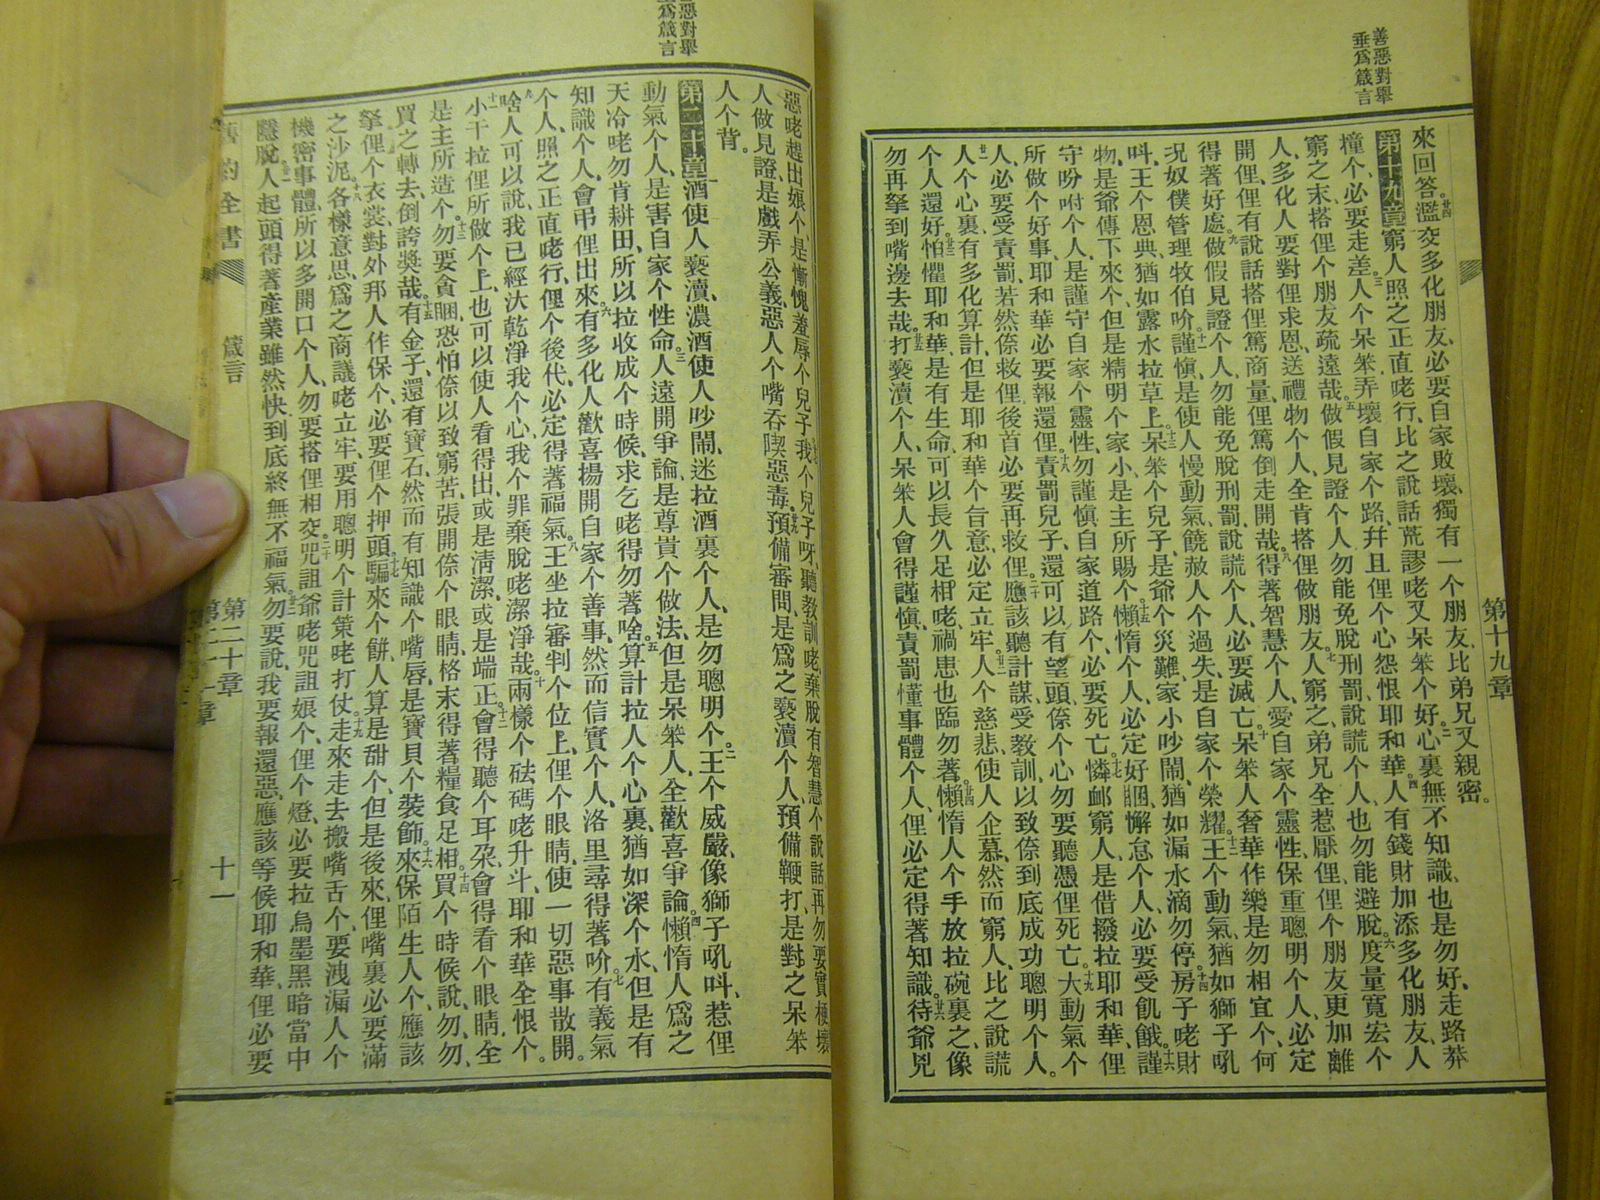 善惡對舉
垂爲箴言
第十九章
來回答濫交多化朋友、必要自家敗壞、獨有一个朋友、比弟兄又親密。
第十九章窮人照之正直咾行、比之說話荒謬咾又呆笨个好。心裏無不知識、也是勿好、走路莽
撞个、必要走差。人个呆笨弄壞自家个路、幷且俚个心怨恨耶和華。人有錢財加添多化朋友、人
窮之末、搭俚个朋友疏遠哉。做假見證个人、勿能免脫刑罰、說謊个人、也勿能避脫。度量寬宏个
人、多化人要對俚求恩、送禮物个人、全肯搭俚做朋友。人窮之、弟兄全惹厭俚、俚个朋友更加離
開俚、俚有說話搭俚篤商量、俚篤倒走開哉。得著智慧个人、愛自家个靈性、保重聰明个人、必定
得著好處。做假見證个人、勿能免脫刑罰、說謊个人、必要滅亡。呆笨人奢華作樂、是勿相宜个、何
況奴僕管理牧伯吤。謹愼是使人慢動氣、饒赦人个過失、是自家个榮耀。王个動氣、猶如獅子吼
呌、王个恩典、猶如露水拉草上。呆笨个兒子、是爺个災難、家小吵鬧、猶如漏水滴勿停。房子咾財
物、是爺傳下來个、但是精明个家小、是主所賜个。懶惰个人、必定好睏、懈怠个人、必要受飢餓。謹
守吩咐个人、是謹守自家个靈性、勿謹愼自家道路个、必要死亡。憐卹窮人、是借撥拉耶和華、俚
所做个好事、耶和華必要報還俚。責罰兒子、還可以有望頭、倷个心勿要聽憑俚死亡。大動氣个
人、必要受責罰、若然倷救俚、後首必要再救俚。應該聽計謀受教訓、以致倷到底成功聰明个人。
人个心裏、有多化算計、但是耶和華个旨意、必定立牢。人个慈悲、使人企慕、然而窮人、比之說謊
个人還好。怕懼耶和華、是有生命、可以長久足相咾、禍患也臨勿著。懶惰人个手、放拉碗裏之、像
勿再拏到嘴邊去哉。打褻瀆个人、呆笨人會得謹愼、責罰懂事體个人、俚必定得著知識。待爺兇
惡對舉
爲箴言
惡咾趕出娘个、是慚愧羞辱个兒子。我个兒子呀、聽教訓咾棄脫有智慧个說話、再勿要實梗壞
人做見證、是戲弄公義、惡人个嘴吞喫惡毒。預備審問、是爲之褻瀆个人、預備鞭打、是對之呆笨
人个背。
第二十章酒使人褻瀆、濃酒使人吵鬧、迷拉酒裏个人、是勿聰明个。王个威嚴、像獅子吼呌、惹俚
動氣个人、是害自家个性命。人遠開爭論、是尊貴个做法、但是呆笨人、全歡喜爭論。懶惰人、爲之
天冷咾勿肯耕田、所以拉收成个時候、求乞咾得勿著啥。算計拉人个心裏、猶如深个水、但是有
知識个人、會弔俚出來。有多化人、歡喜揚開自家个善事、然而信實个人、洛里尋得著吤。有義氣
个人、照之正直咾行、俚个後代、必定得著福氣。王坐拉審判个位上、俚个眼睛、使一切惡事散開。
啥人可以說、我已經汏乾淨我个心、我个罪棄脫咾潔淨哉。兩樣个砝碼咾升斗、耶和華全恨个。
小干拉俚所做个上、也可以使人看得出、或是淸潔、或是端正。會得聽个耳朶、會得看个眼睛、全
是主所造个。勿要貪睏、恐怕倷以致窮苦、張開倷个眼睛格末得著糧食足相。買个時候說、勿、勿、
買之轉去、倒誇獎哉。有金子、還有寶石、然而有知識个嘴唇、是寶貝个裝飾。來保陌生人个、應該
拏俚个衣裳、對外邦人作保个、必要俚个押頭。騙來个餅、人算是甜个、但是後來、俚嘴裏必要滿
之沙泥。各樣意思、爲之商議咾立牢、要用聰明个計策咾打仗。走來走去搬嘴舌个、要洩漏人个
機密事體、所以多開口个人、勿要搭俚相交。咒詛爺咾咒詛娘个、俚个燈、必要拉烏墨黑暗當中
隱脫。人起頭得著產業雖然快、到底終無不福氣。勿要說、我要報還惡、應該等候耶和華、俚必要
舊約全書
箴言
第二十章
第二十一章
十一